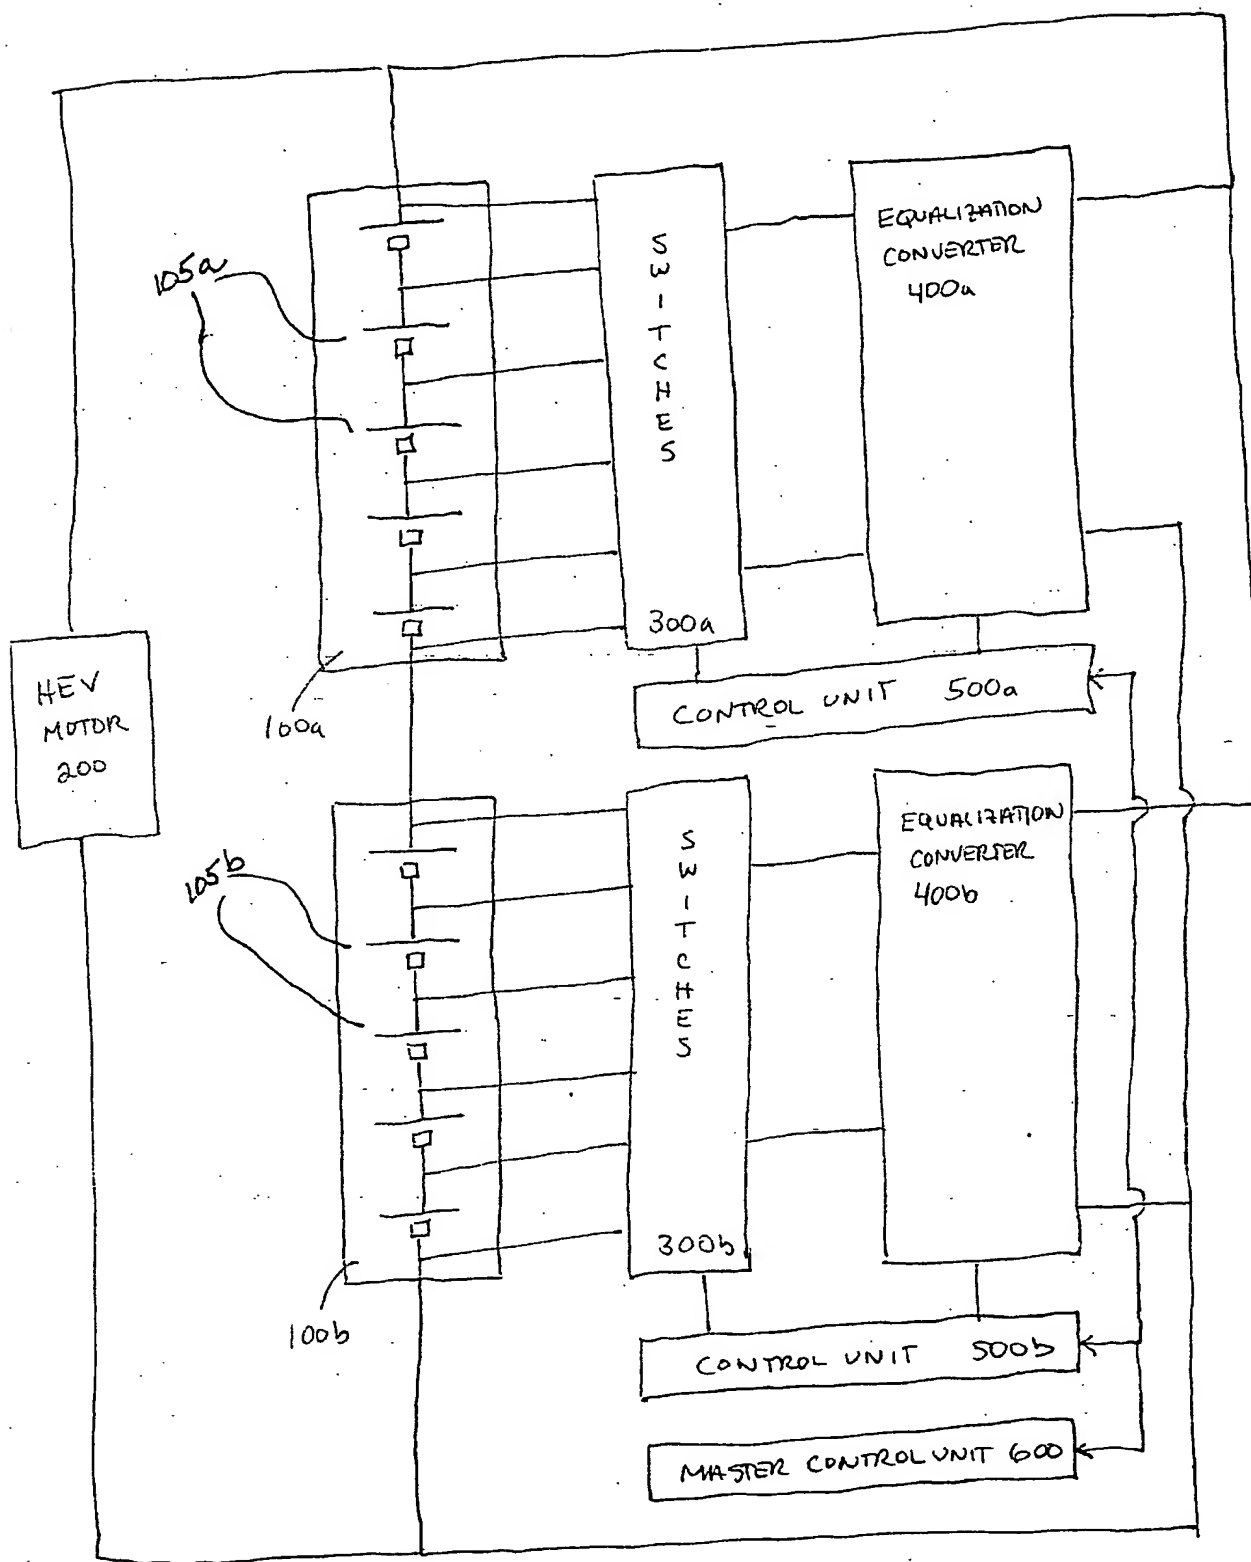 105a
S
W
I
T
C
H
E
S
300a
EQUALIZATION
CONVERTER
400a
HEV
MOTOR
200
100a
CONTROL UNIT 500a
105b
S
W
I
T
C
H
E
S
300b
EQUALIZATION
CONVERTER
400b
100b
CONTROL UNIT 500b
MASTER CONTROL UNIT 600